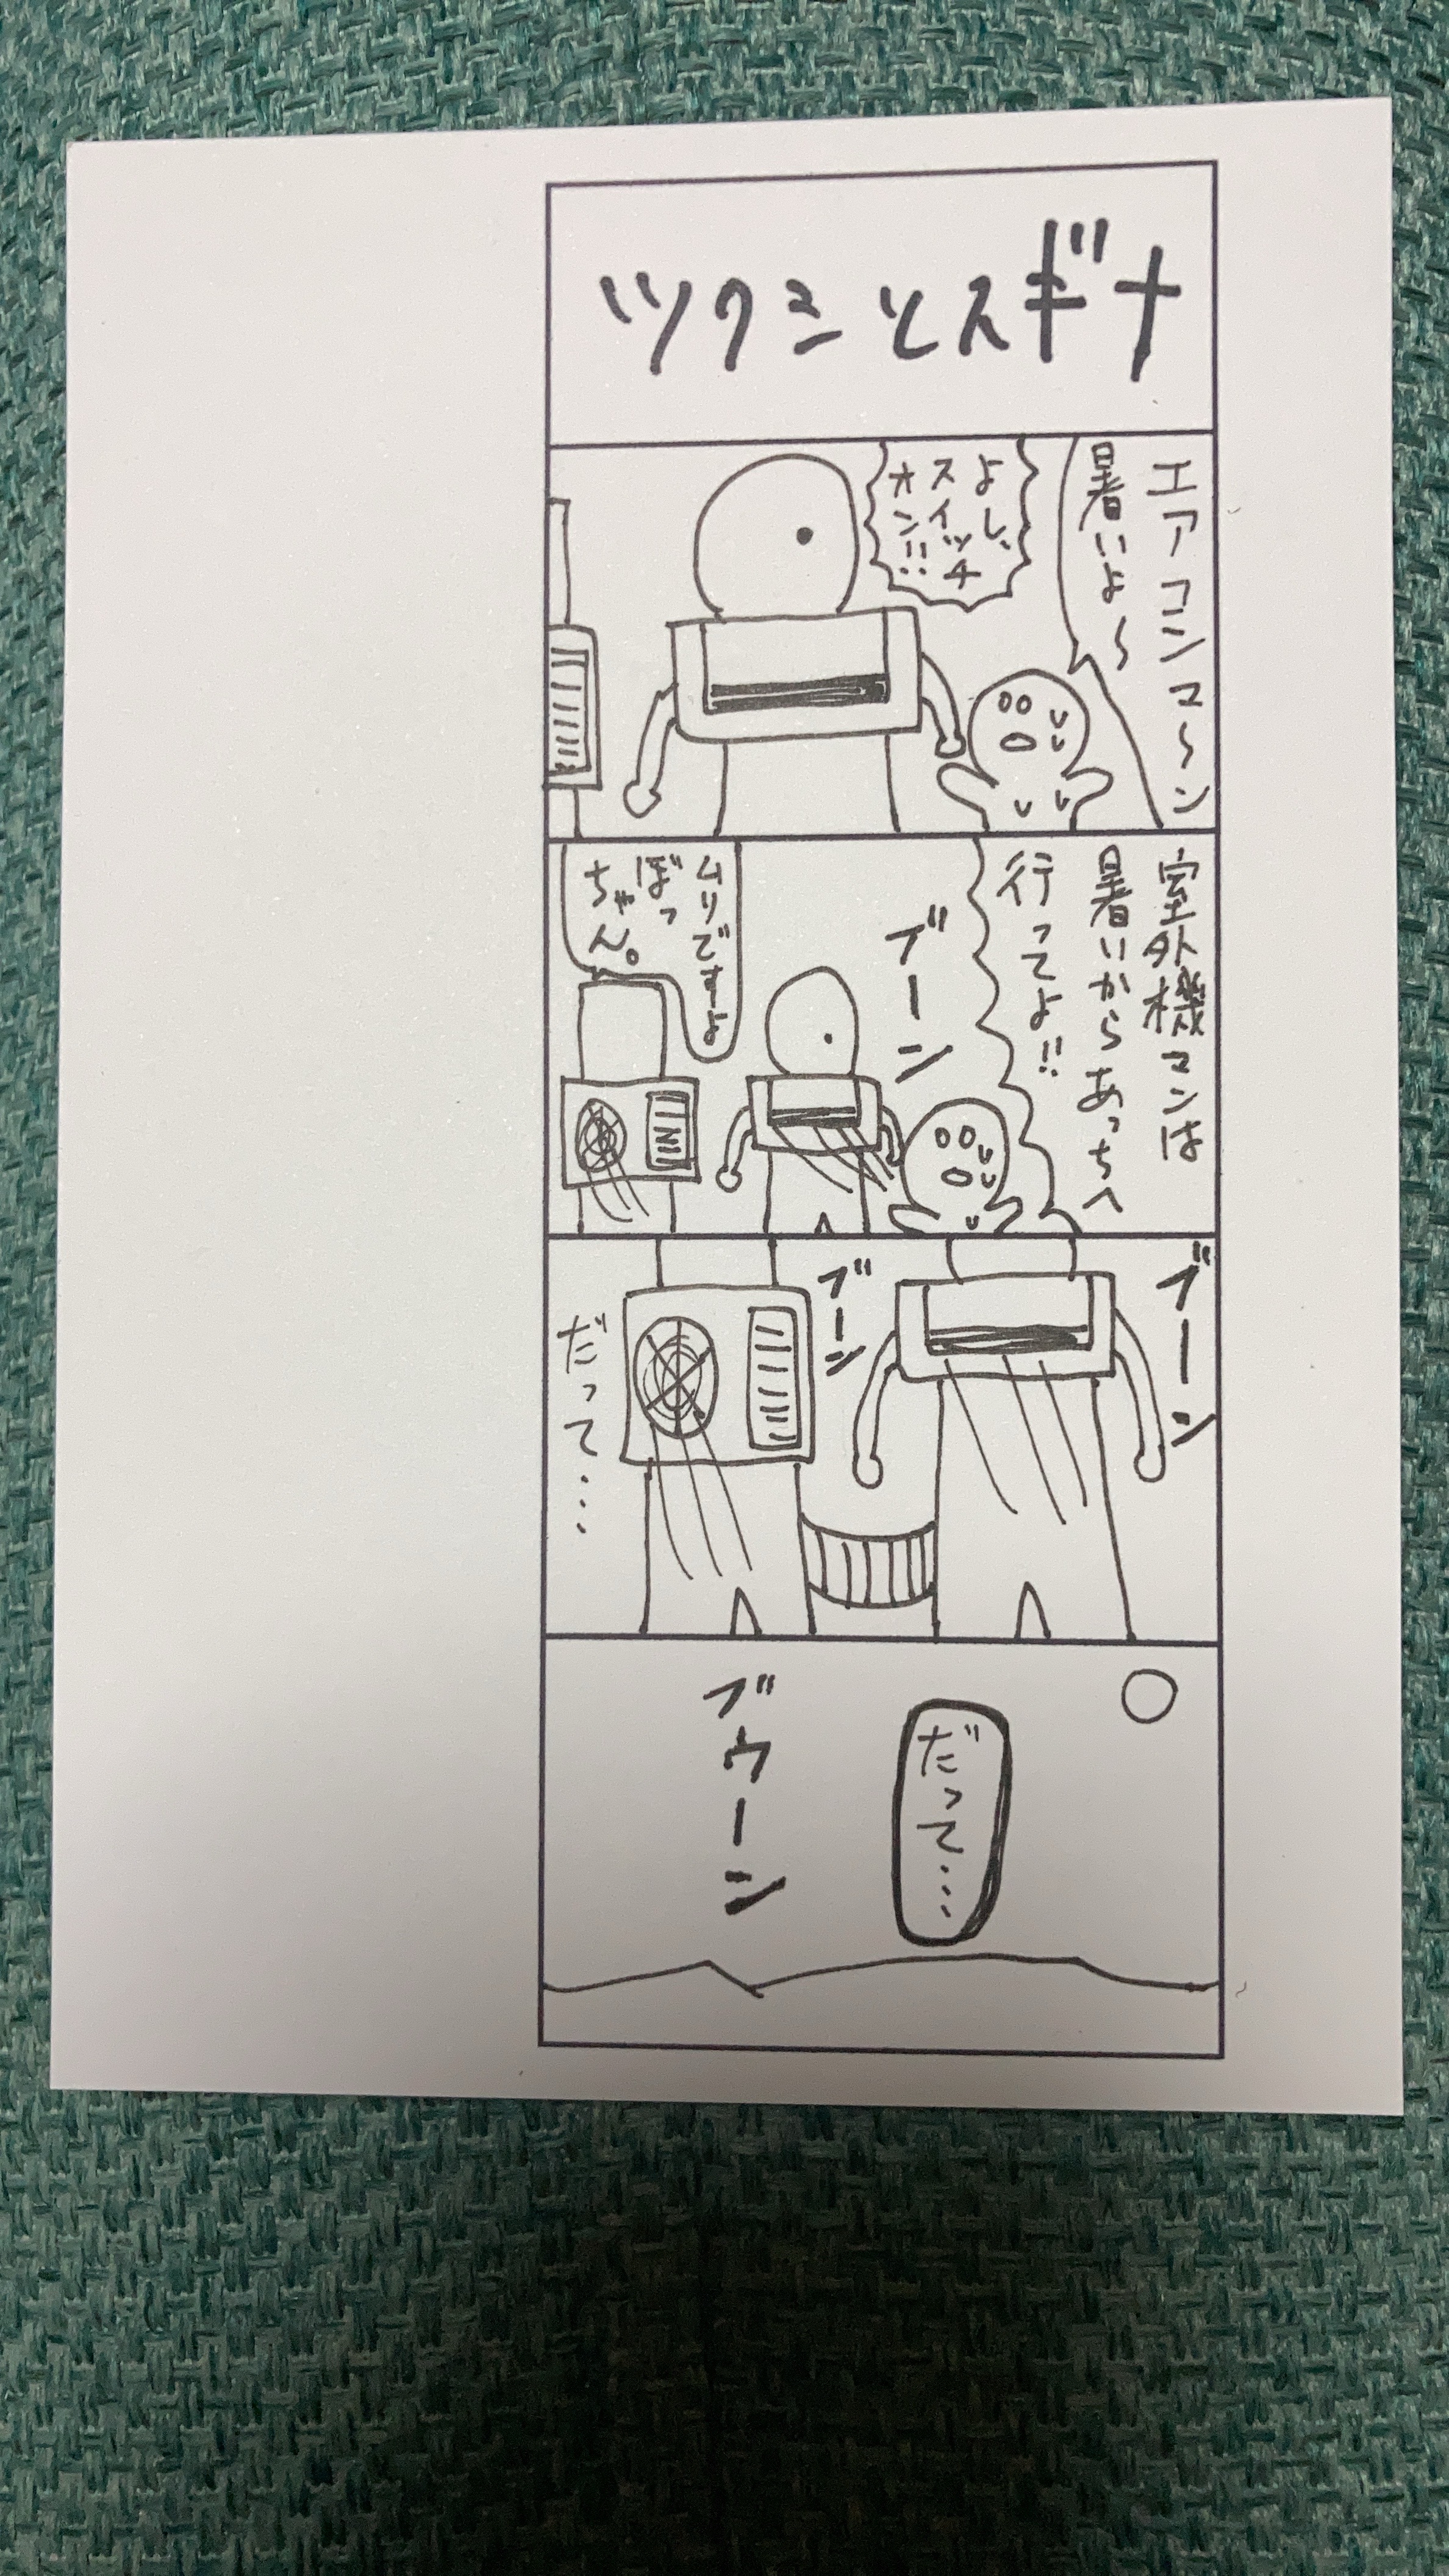 ツクシとスギナ
エアコンマ〜ン
暑いよ〜
よし、
スイッチ
オン!!
室外機マンは
暑いからあっちへ
行ってよ!!
ブーン
ムリですよ
ぼっ
ちゃん。
ブーン
ブーン
だって…
だって…
ブウーン